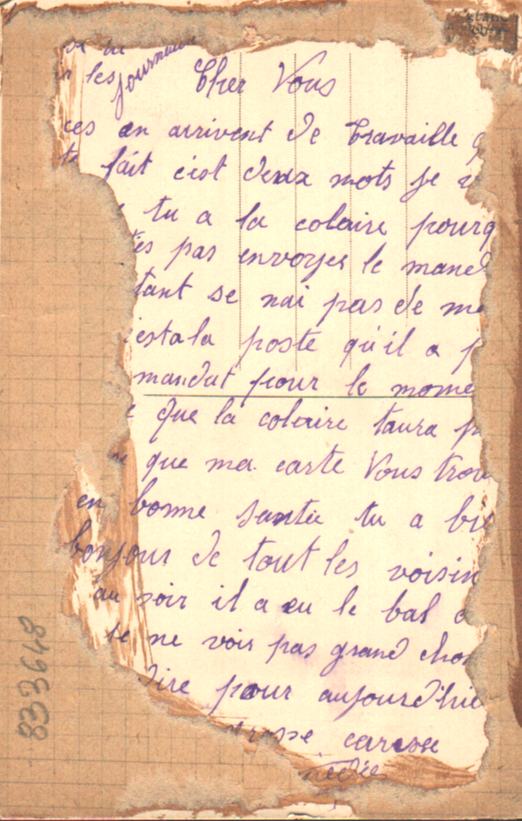 les journaux
Cher Vous
ces en arrivent de travaille
fait c'est deux mots je
tu a la colaire pourq
es pas envoyer le mand
tant se nai pas de me
estala poste qu'il a p
mandat pour le mome
que la colaire taura p
que ma carte Vous trou
en bonne santée tu a bi
bonjour de tout les voisin
au soir il a eu le bal
se ne vois pas grand cho
dire pour aujourd'hui
caresse
833648